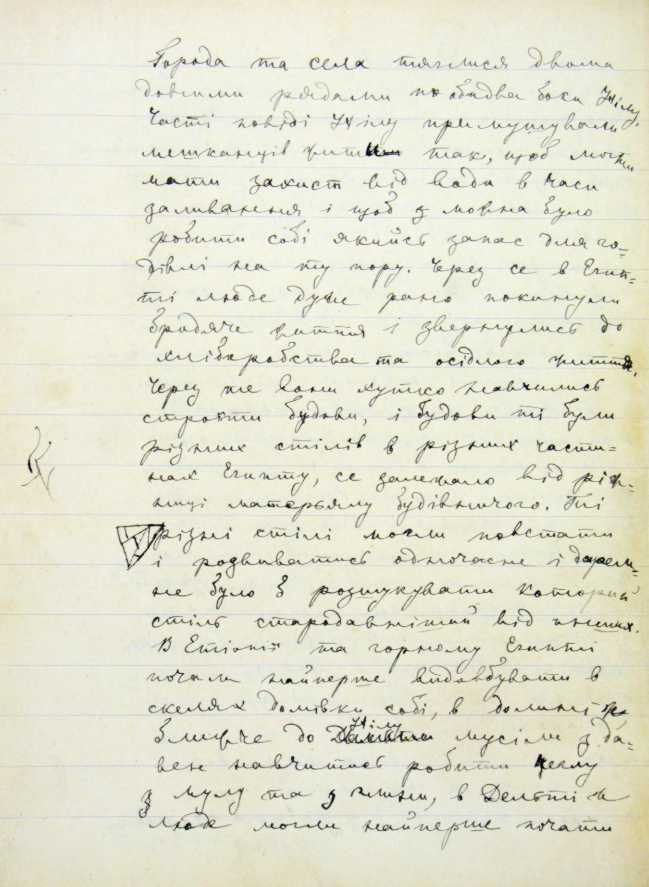 Города та села тяглися двома
довгими рядами по обидва боки Нілу.
Часті поводі Нілу примушували
мешканців жити так, щоб могти
мати захист від води в часи
заливання і щоб з можна було
робити собі якийсь запас для го=
дівлі на ту пору. Через се в Егип=
ті люде дуже рано покинули
бродяче життя і звернулись до
хліборобства та осідлого життя.
Через те вони хутко навчились
строїти будови, і будови ті були
різних стілів в різних части=
нах Египту, се залежало від ріж=
ниці матерьялу будівничого. Ті
різні стілі могли повстати
і розвиватись одночасне і дарем=
не було б розшукувати которий
стіль стародавніший від инших.
В Етіопії та горному Египті
почали найперше видовбувати в
скелях домівки собі, в долині
ближче до Нілу мусіли з да=
вен навчитись робити цеглу
з мулу та з глини, в Дельті ж
люде могли найперше почати